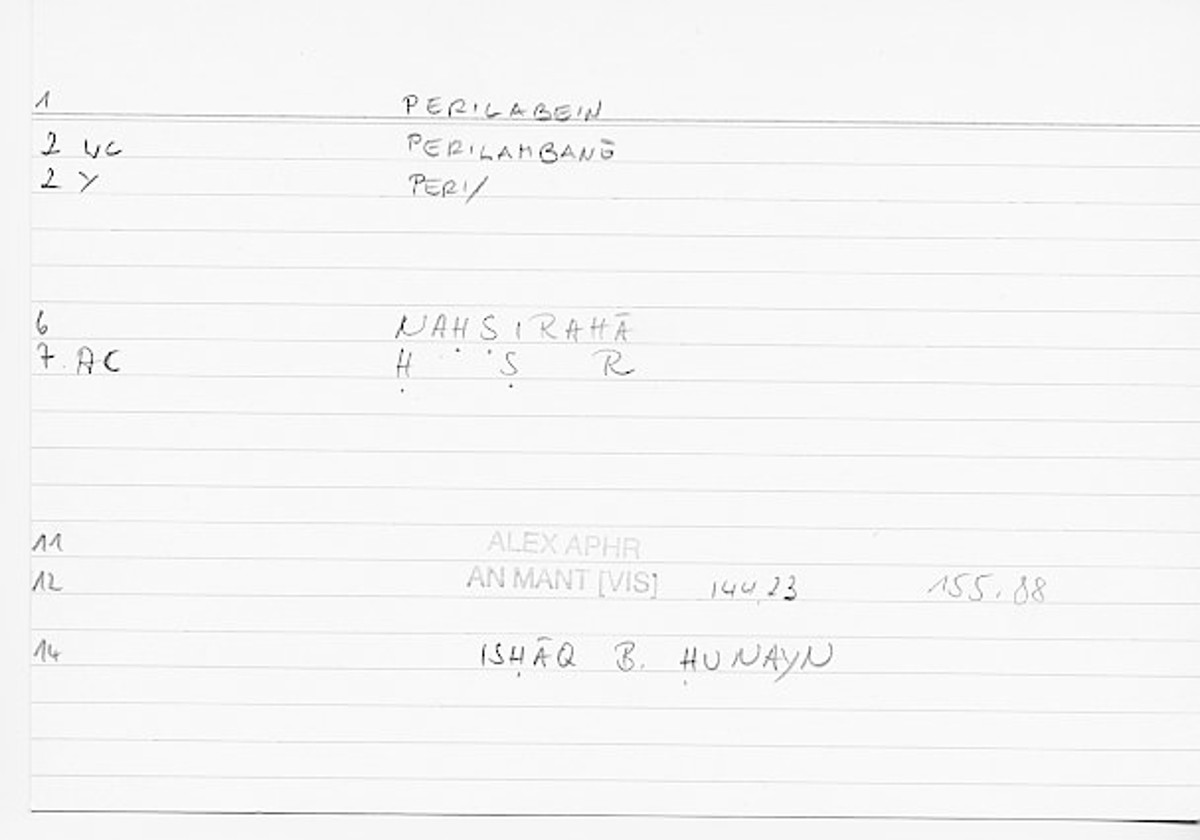 1 PERILABEIN
2 LC PERILAMBANŌ
2 Y PERI/
6 NAḤṢIRAHĀ
7. AC Ḥ Ṣ R
11 ALEX APHR
12 AN MANT [VIS] 144,23 155.88
14 ISḤĀQ B. ḤUNAYN